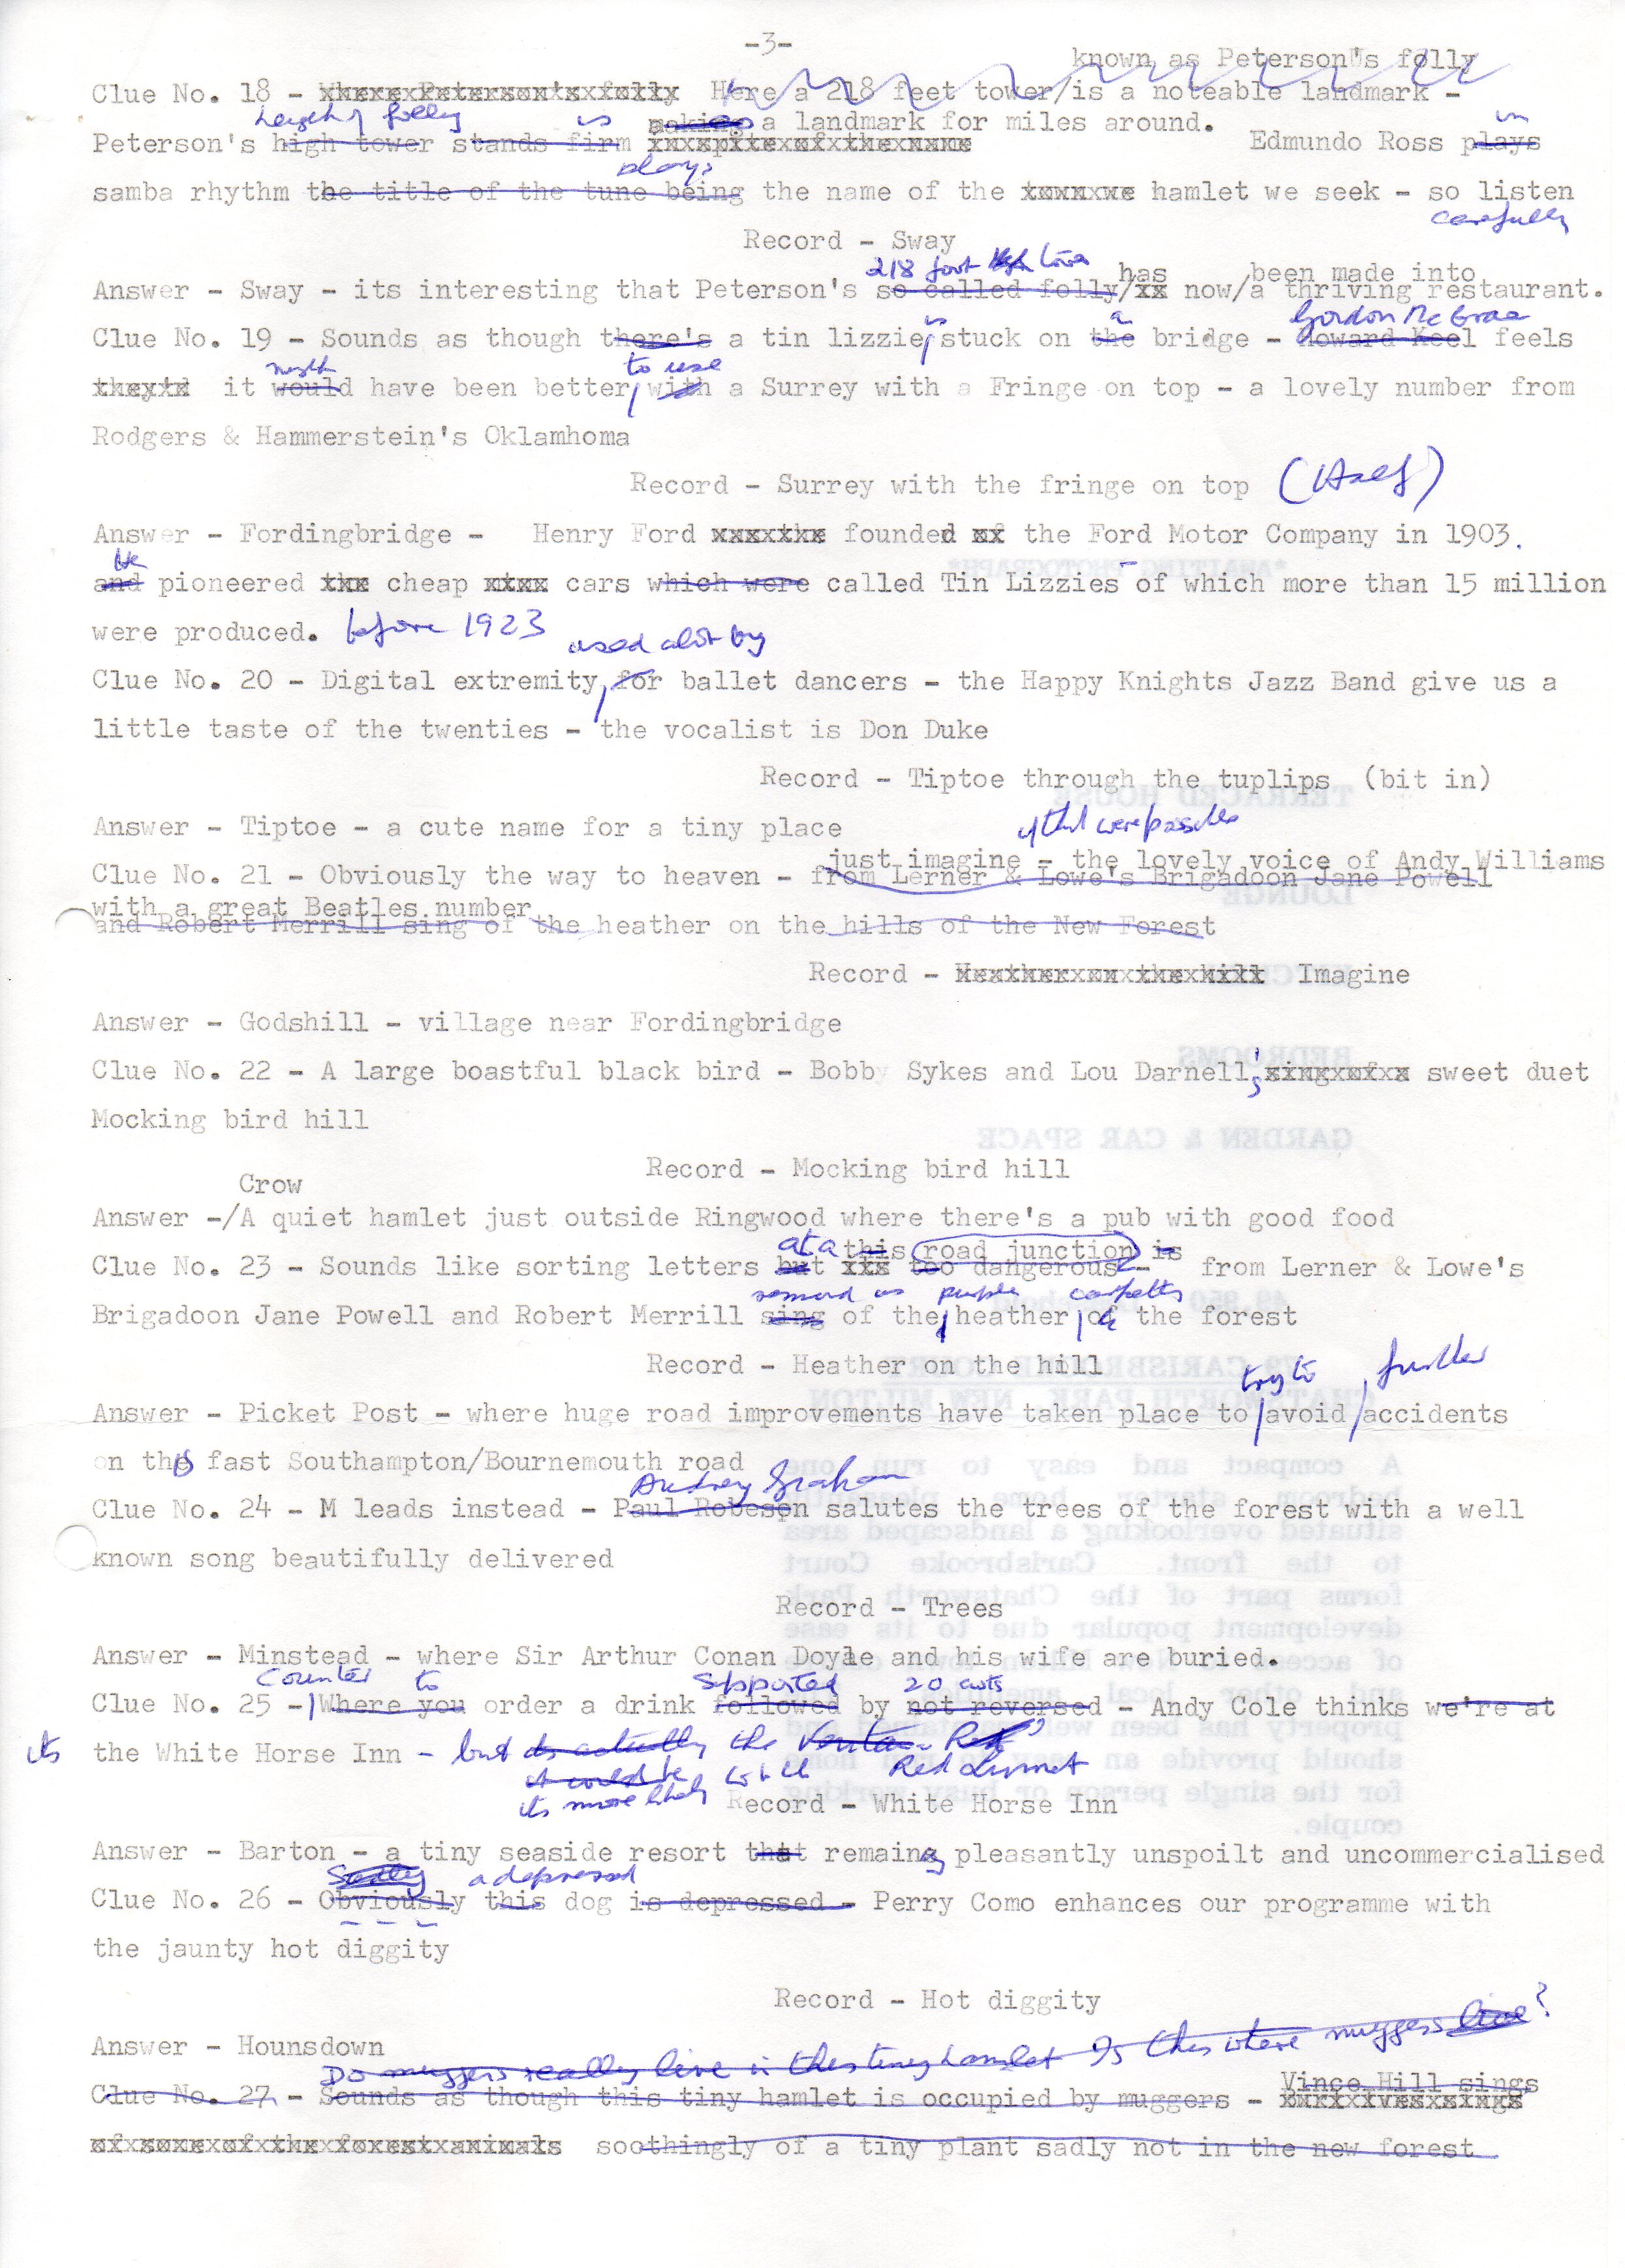 -3-
known as Peterson's folly
Clue No. 18 - Where Peterson's folly Here a 218 feet tower/is a noteable landmark -
height of folly is making a landmark for miles around. in
Peterson's high tower stands firm Edmundo Ross plays
plays
samba rhythm the title of the tune being the name of the hamlet we seek - so listen
carefully
Record - Sway
218 foot high has been made into
Answer - Sway - its interesting that Peterson's so called folly/xx now/a thriving restaurant.
is a Gordon McCrae
Clue No. 19 - Sounds as though there's a tin lizzie stuck on the bridge - Howard Keel feels
might to use
it would have been better with a Surrey with a Fringe on top - a lovely number from
Rodgers & Hammerstein's Oklamhoma
Record - Surrey with the fringe on top (Half)
Answer - Fordingbridge - Henry Ford founded the Ford Motor Company in 1903.
He
and pioneered cheap cars which were called Tin Lizzies - of which more than 15 million
were produced. before 1923
used alot by
Clue No. 20 - Digital extremity, for ballet dancers - the Happy Knights Jazz Band give us a
little taste of the twenties - the vocalist is Don Duke
Record - Tiptoe through the tuplips (bit in)
Answer - Tiptoe - a cute name for a tiny place
if that were possible
just imagine - the lovely voice of Andy Williams
Clue No. 21 - Obviously the way to heaven - from Lerner & Lowe's Brigadoon Jane Powell
with a great Beatles number
and Robert Merrill sing of the heather on the hills of the New Forest
Record - Heather on the hill Imagine
Answer - Godshill - village near Fordingbridge
Clue No. 22 - A large boastful black bird - Bobby Sykes and Lou Darnell's sweet duet
Mocking bird hill
Record - Mocking bird hill
Crow
Answer -/A quiet hamlet just outside Ringwood where there's a pub with good food
at a this road junction is
Clue No. 23 - Sounds like sorting letters but too dangerous - from Lerner & Lowe's
remind us purple carpetts
Brigadoon Jane Powell and Robert Merrill sing of the heather of the forest
Record - Heather on the hill
try to further
Answer - Picket Post - where huge road improvements have taken place to avoid accidents
on this fast Southampton/Bournemouth road
Audrey Graham
Clue No. 24 - M leads instead - Paul Robeson salutes the trees of the forest with a well
known song beautifully delivered
Record - Trees
Answer - Minstead - where Sir Arthur Conan Doyle and his wife are buried.
Counter to supported 20 cwts
Clue No. 25 - Where you order a drink followed by not reversed - Andy Cole thinks we're at
its the White Horse Inn - but its actually the
it could be to be Red Linnet
its more likely Record - White Horse Inn
Answer - Barton - a tiny seaside resort that remains pleasantly unspoilt and uncommercialised
Sadly a depressed
Clue No. 26 - Obviously this dog is depressed - Perry Como enhances our programme with
the jaunty hot diggity
Record - Hot diggity
Answer - Hounsdown
Do muggers really live in this tiny hamlet Is this where muggers live?
Vince Hill sings
Clue No. 27 - Sounds as though this tiny hamlet is occupied by muggers -
of some of the forest animals soothingly of a tiny plant sadly not in the new forest